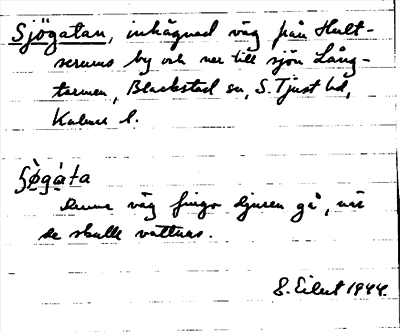 Sjögatan, inhägnad väg från Hult-
serums by och ner till sjön Lång-
tarmen, Blackstad sn, S. Tjust hd,
Kalmar l.
Sø̀gáta
Denna väg fingo djuren gå, när
de skulle vattnas.
S. Eilert 1944.